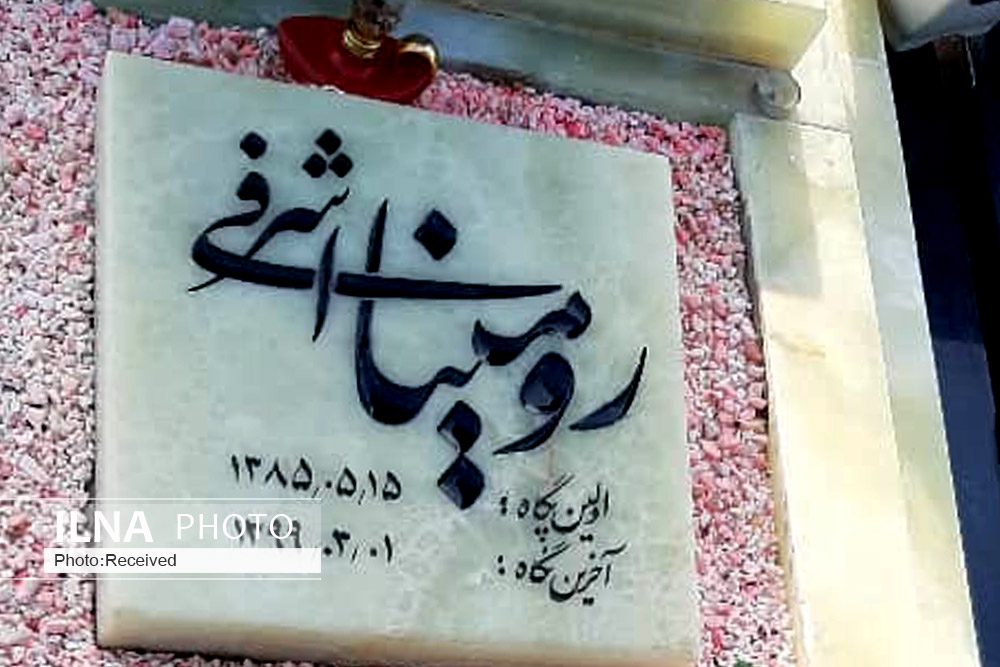 رومینا اشرفی
اولین نگاه : ۱۳۸۵٫۰۵٫۱۵
آخرین نگاه : ۱۳۹۹٫۰۳٫۰۱
ILNA PHOTO
Photo:Received